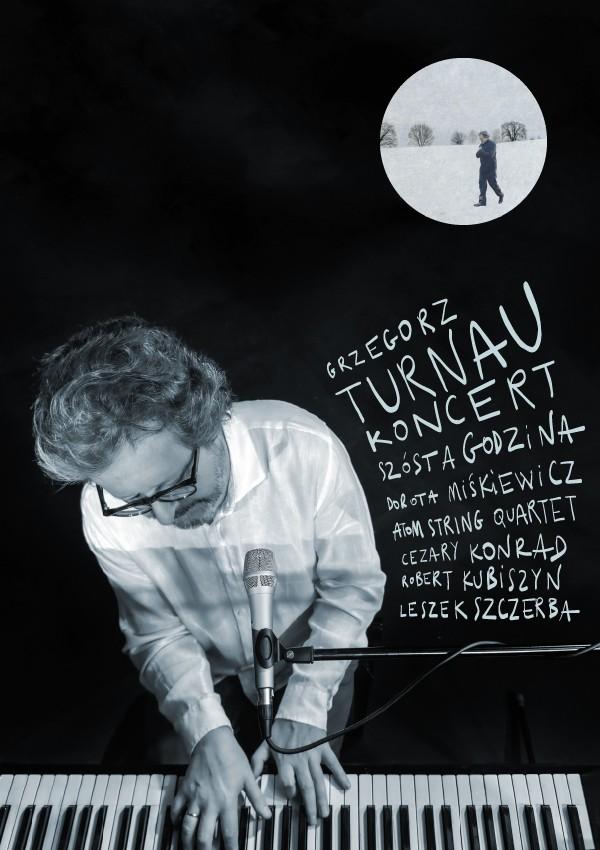 GRZEGORZ
TURNAU
KONCERT
SZÓSTA GODZiNA
DOROTA MiŚKiEWiCZ
ATOM STRING QUARTET
CEZARY KONRAD
ROBERT KUBISZYN
LESZEK SZCZERBA